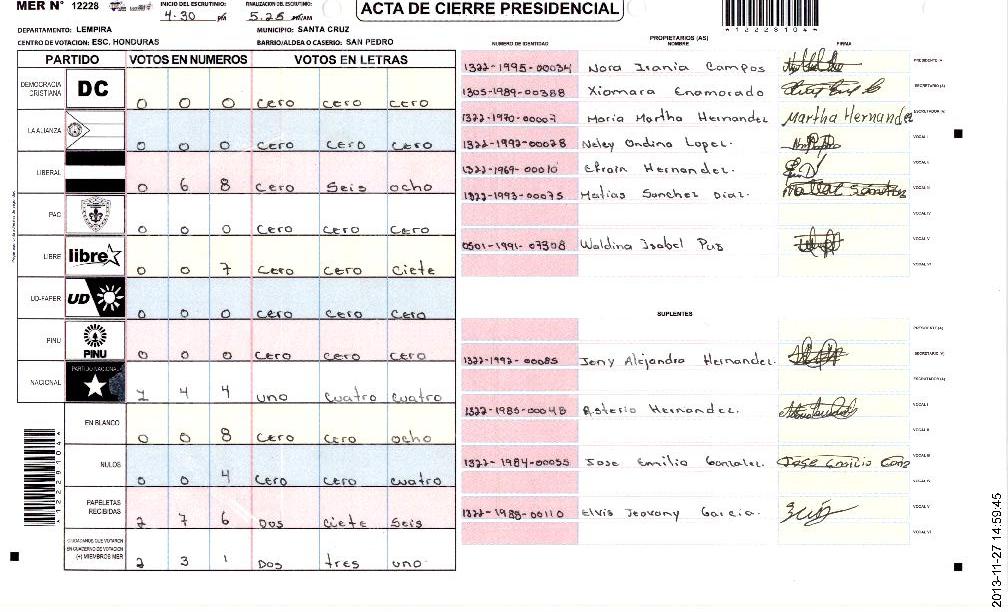 MER N° 12228
INICIO DEL ESCRUTINIO: 4:30 PM
FINALIZACION DEL ESCRUTINIO: 5:25 PM/AM
ACTA DE CIERRE PRESIDENCIAL
DEPARTAMENTO: LEMPIRA
MUNICIPIO: SANTA CRUZ
CENTRO DE VOTACION: ESC. HONDURAS
BARRIO/ALDEA O CASERIO: SAN PEDRO
*12228104*
PARTIDO VOTOS EN NUMEROS VOTOS EN LETRAS
DEMOCRACIA CRISTIANA DC 0 0 0 cero cero cero
LA ALIANZA 0 0 0 cero cero cero
LIBERAL 0 6 8 cero seis ocho
PAC 0 0 0 cero cero cero
LIBRE libre 0 0 7 cero cero ciete
UD-FAPER UD 0 0 0 cero cero cero
PINU PINU 0 0 0 cero cero cero
NACIONAL PARTIDO NACIONAL 1 4 4 uno cuatro cuatro
EN BLANCO 0 0 8 cero cero ocho
NULOS 0 0 4 cero cero cuatro
PAPELETAS RECIBIDAS 2 7 6 Dos ciete seis
CIUDADANOS QUE VOTARON EN CUADERNO DE VOTACION (+) MIEMBROS MER 2 3 1 Dos tres uno
PROPIETARIOS (AS)
NUMERO DE IDENTIDAD NOMBRE FIRMA
1322-1995-00034 Nora Irania Campos PRESIDENTE (A)
1305-1989-00388 Xiomara Enamorado SECRETARIO (A)
1322-1970-00007 Maria Martha Hernandez Martha Hernandez ESCRUTADOR (A)
1322-1992-00028 Neley Ondina Lopez. VOCAL I
1322-1969-00010 Efrain Hernandez. VOCAL II
1322-1993-00075 Matias Sanchez Diaz. VOCAL III
VOCAL IV
0501-1991-07308 Waldina Isabel VOCAL V
VOCAL VI
SUPLENTES
PRESIDENTE (A)
1322-1992-00085 Jeny Alejandra Hernandez. SECRETARIO (A)
ESCRUTADOR (A)
1322-1985-00048 Asterio Hernandez. VOCAL I
VOCAL II
1322-1984-00055 Jose Emilio Gonzalez. Jose Emilio Gonz VOCAL III
VOCAL IV
1322-1988-00110 Elvis Jeovany Garcia. VOCAL V
VOCAL VI
*12228104*
2013-11-27 14:59:45